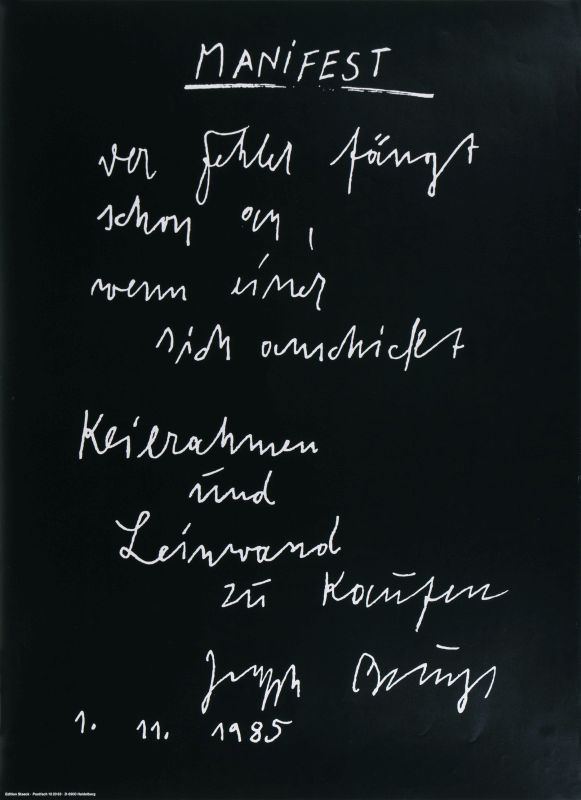 MANiFEST
der Fehler fängt
schon an,
wenn einer
sich anschickt
Keilrahmen
und
Leinwand
zu kaufen
Joseph Beuys
1. 11. 1985
Edition Staeck · Postfach 10 20 63 · D-6900 Heidelberg